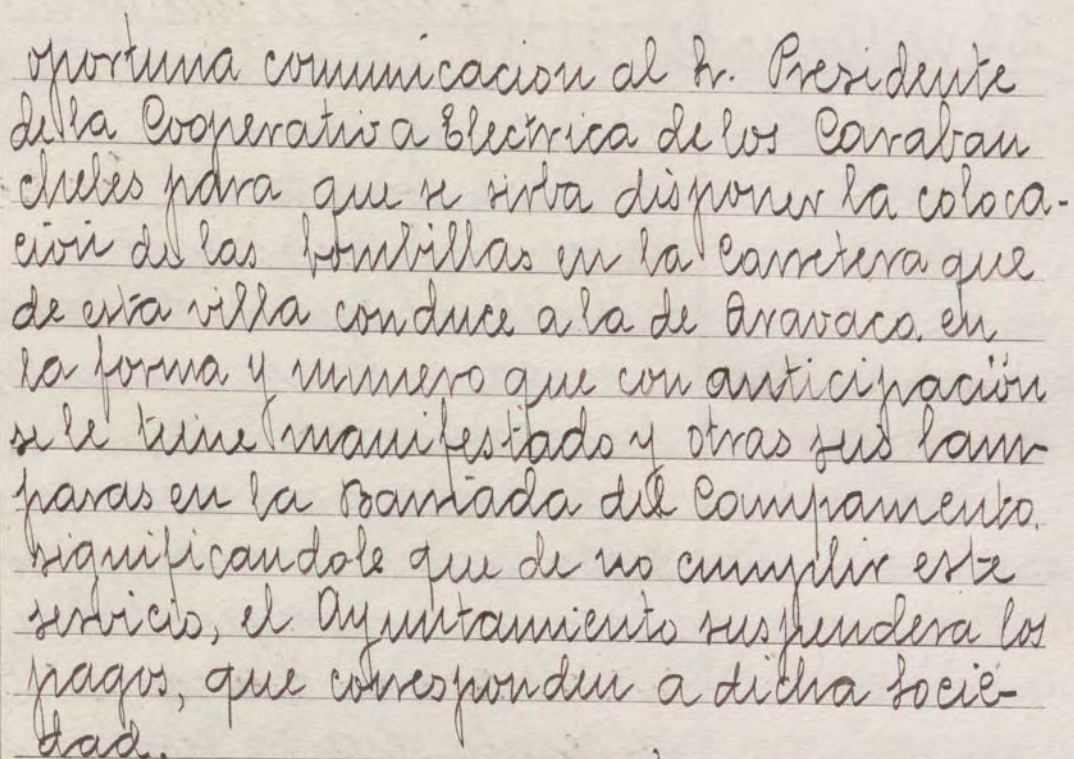 oportuna comunicacion al Sr. Presidente
de la Cooperativa Electrica de los Caraban
cheles para que se sirba disponer la coloca-
ción de las bombillas en la Carretera que
de esta villa conduce a la de Aravaca. en
la forma y numero que con anticipación
se le tiene manifestado y otras seis lam
paras en la Barriada del Campamento.
significandole que de no cumplir este
servicio, el Ayuntamiento suspendera los
pagos, que corresponden a dicha Socie-
dad.